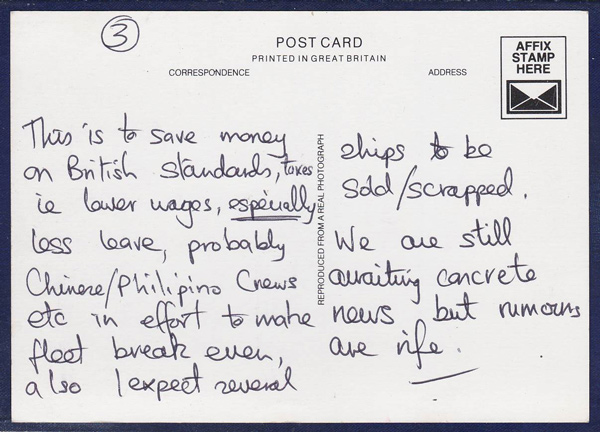 3
POST CARD
PRINTED IN GREAT BRITAIN
CORRESPONDENCE
ADDRESS
AFFIX
STAMP
HERE
This is to save money
on British standards, taxes
ie lower wages, especially
less leave, probably
Chinese/Philipino Crews
etc in effort to make
fleet break even,
also I expect several
REPRODUCED FROM A REAL PHOTOGRAPH
ships to be
Sold/scrapped.
We are still
awaiting concrete
news but rumours
are rife.